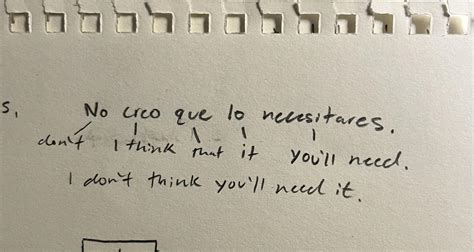 s,
No creo que lo necesitares.
don't I think that it you'll need.
I don't think you'll need it.